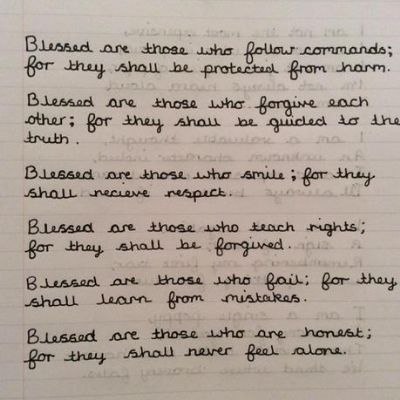 Blessed are those who follow commands;
for they shall be protected from harm.
Blessed are those who forgive each
other; for they shall be guided to the
truth.
Blessed are those who smile; for they
shall recieve respect.
Blessed are those who teach rights;
for they shall be forgived.
Blessed are those who fail; for they
shall learn from mistakes.
Blessed are those who are honest;
for they shall never feel alone.